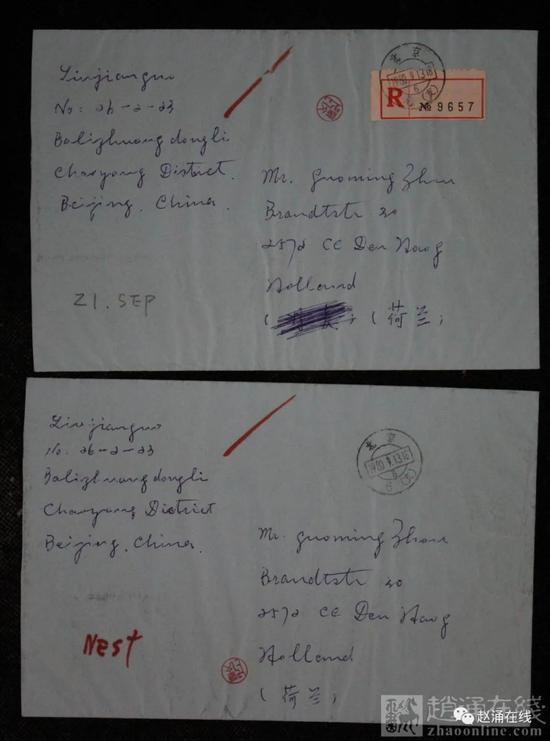 Liu jianguo
No: 26-2-23
Balizhuang dongli
Chaoyang District.
Beijing. China.
北京
R
№ 9657
Mr. Guoming Zhou
Brandtstr 20
2572 CE Den Haag
Holland
(荷兰)
21. SEP
Liu jianguo
No. 26-2-23
Balizhuang dongli
Chaoyang District
Beijing. China.
北京
Mr. Guoming Zhou
Brandtstr 20
2572 CE Den Haag
Holland
(荷兰)
Nest
趙涌在线
zhaoonline.com
赵涌在线